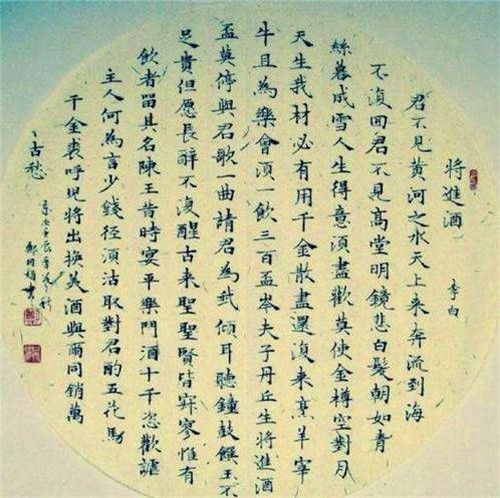 將進酒 李白
君不見黄河之水天上来奔流到海
不復回君不見高堂明鏡悲白髮朝如青
絲暮成雪人生得意須盡歡莫使金樽空對月
天生我材必有用千金散盡還復来烹羊宰
牛且為樂會須一飲三百盃岑夫子丹丘生將進酒
盃莫停與君歌一曲請君為我傾耳聽鐘鼓饌玉不
足貴但愿長醉不復醒古来聖聖賢皆寂寥惟有
飲者留其名陳王昔時宴平樂鬥酒十千恣歡謔
主人何為言少錢徑須沽取對君酌五花馬
千金裘呼児將出換美酒與爾同銷萬
古愁